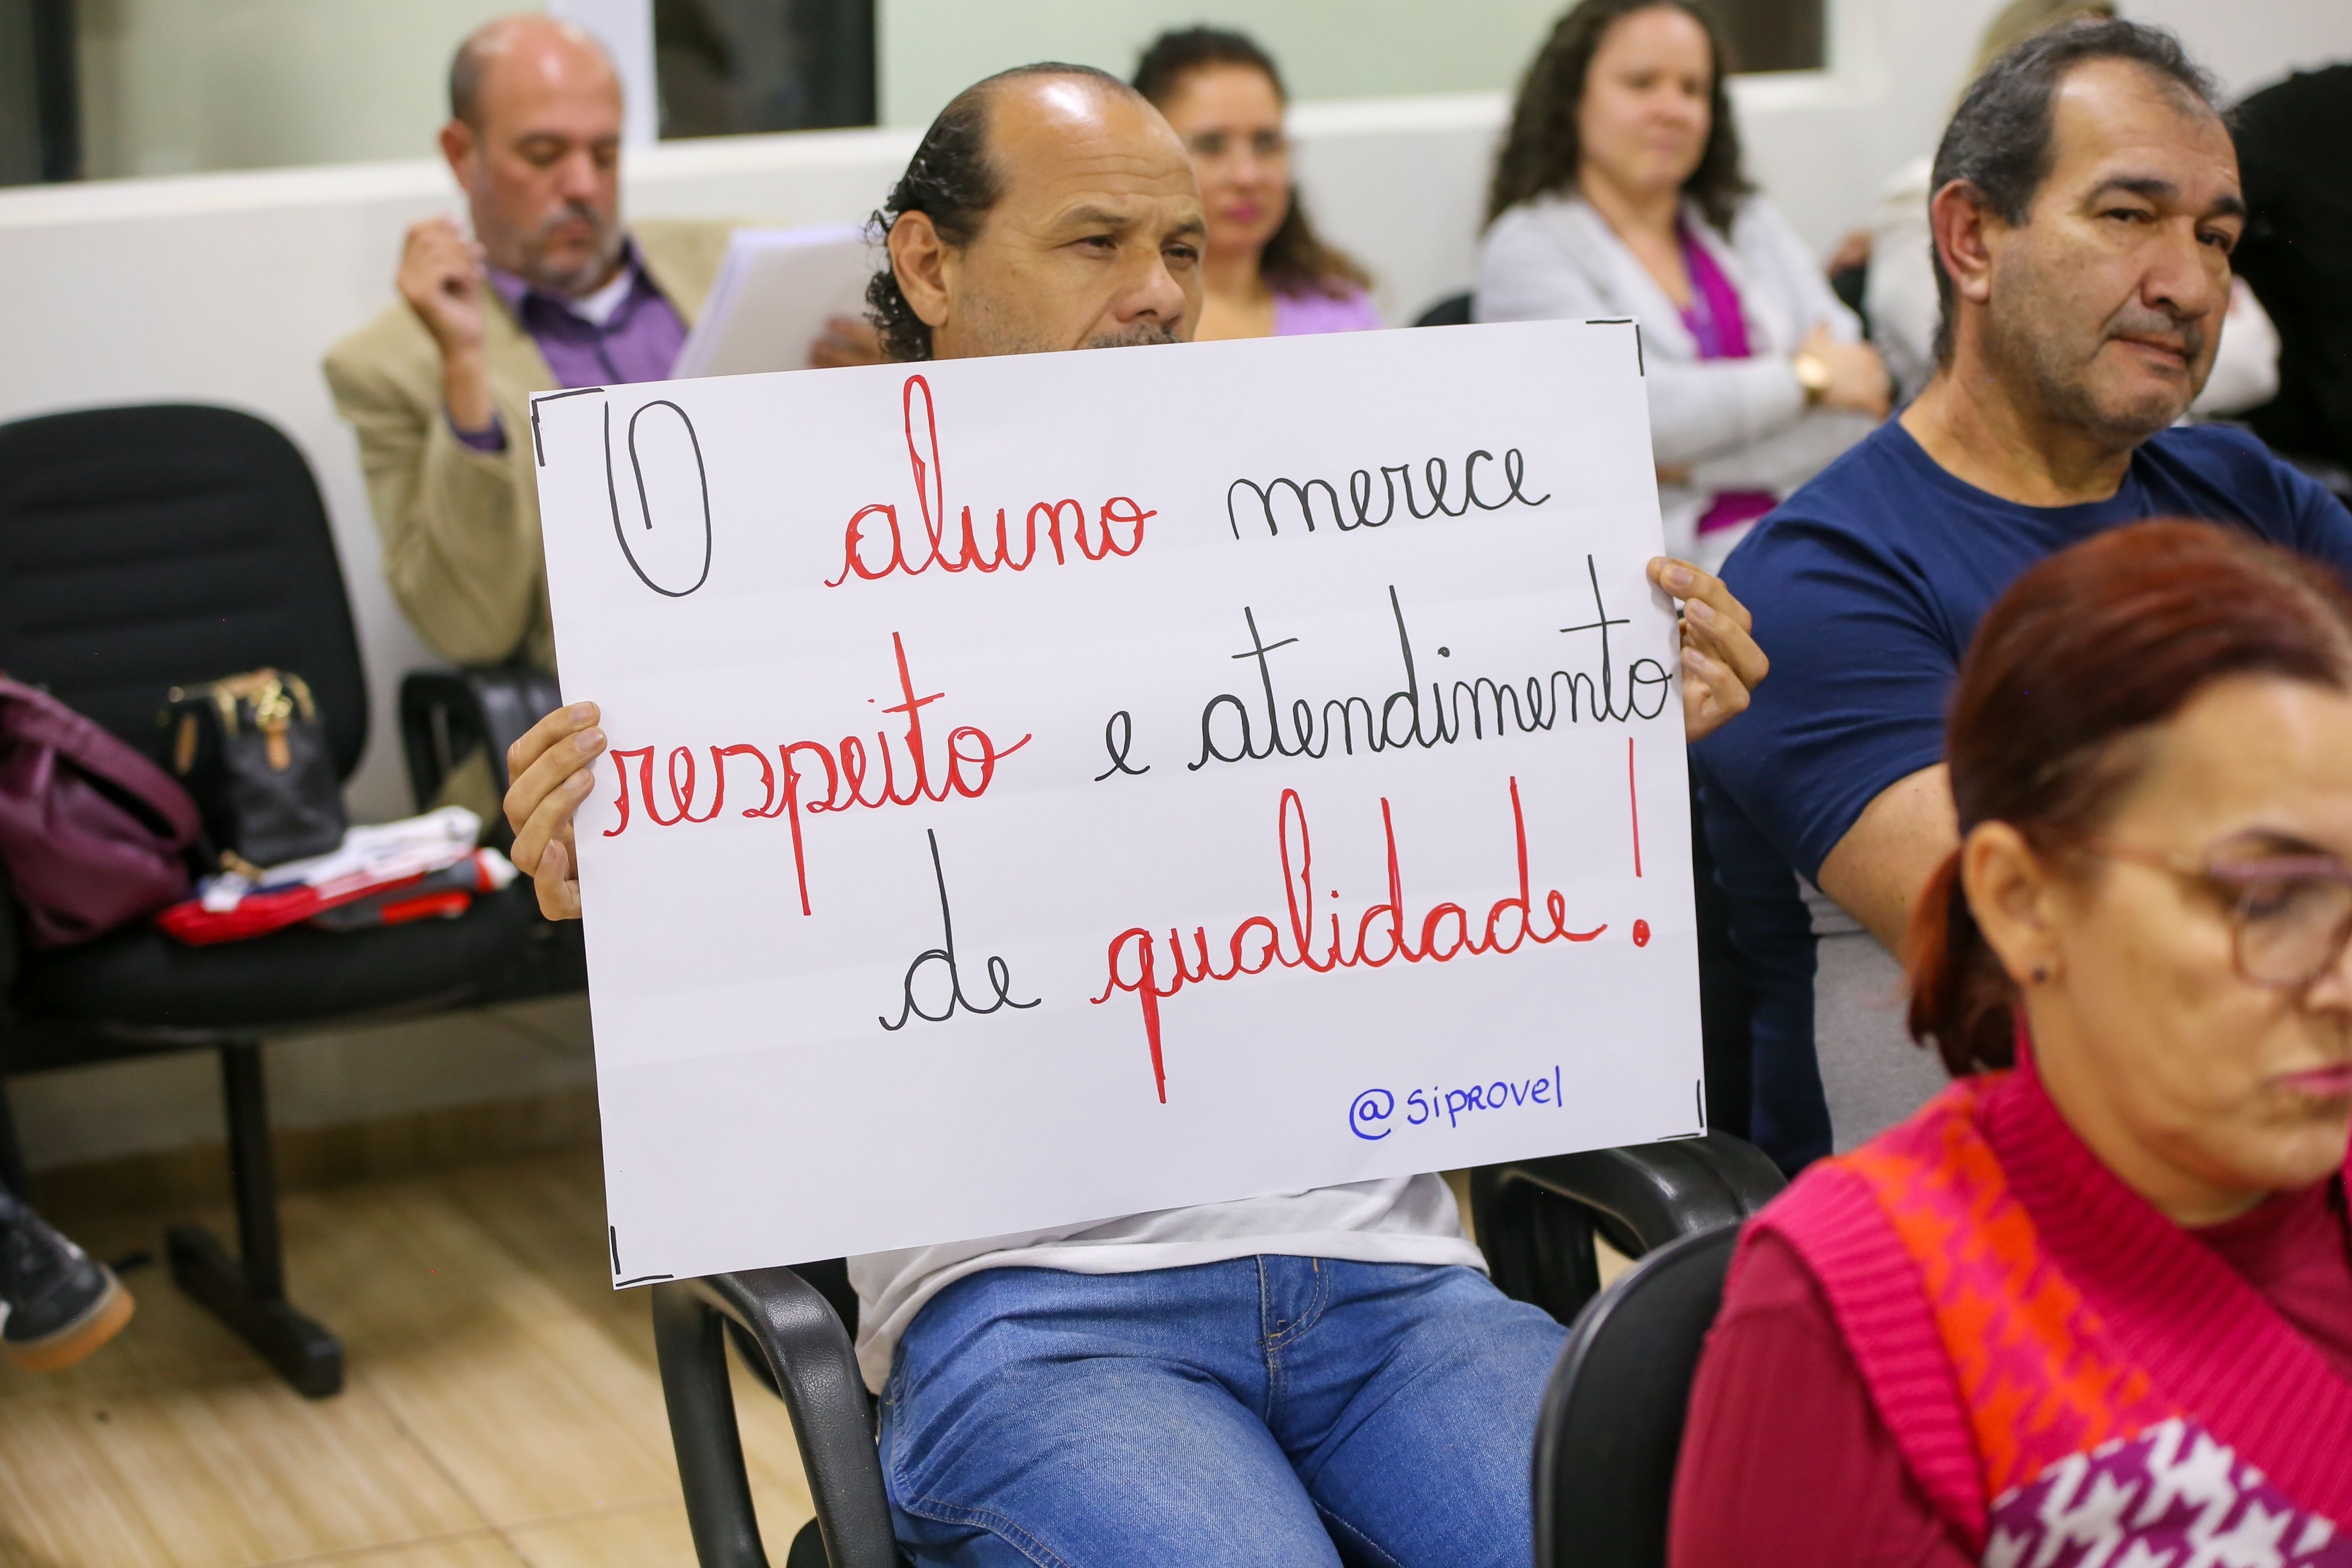 O aluno merece
respeito e atendimento
de qualidade!
@siprovel